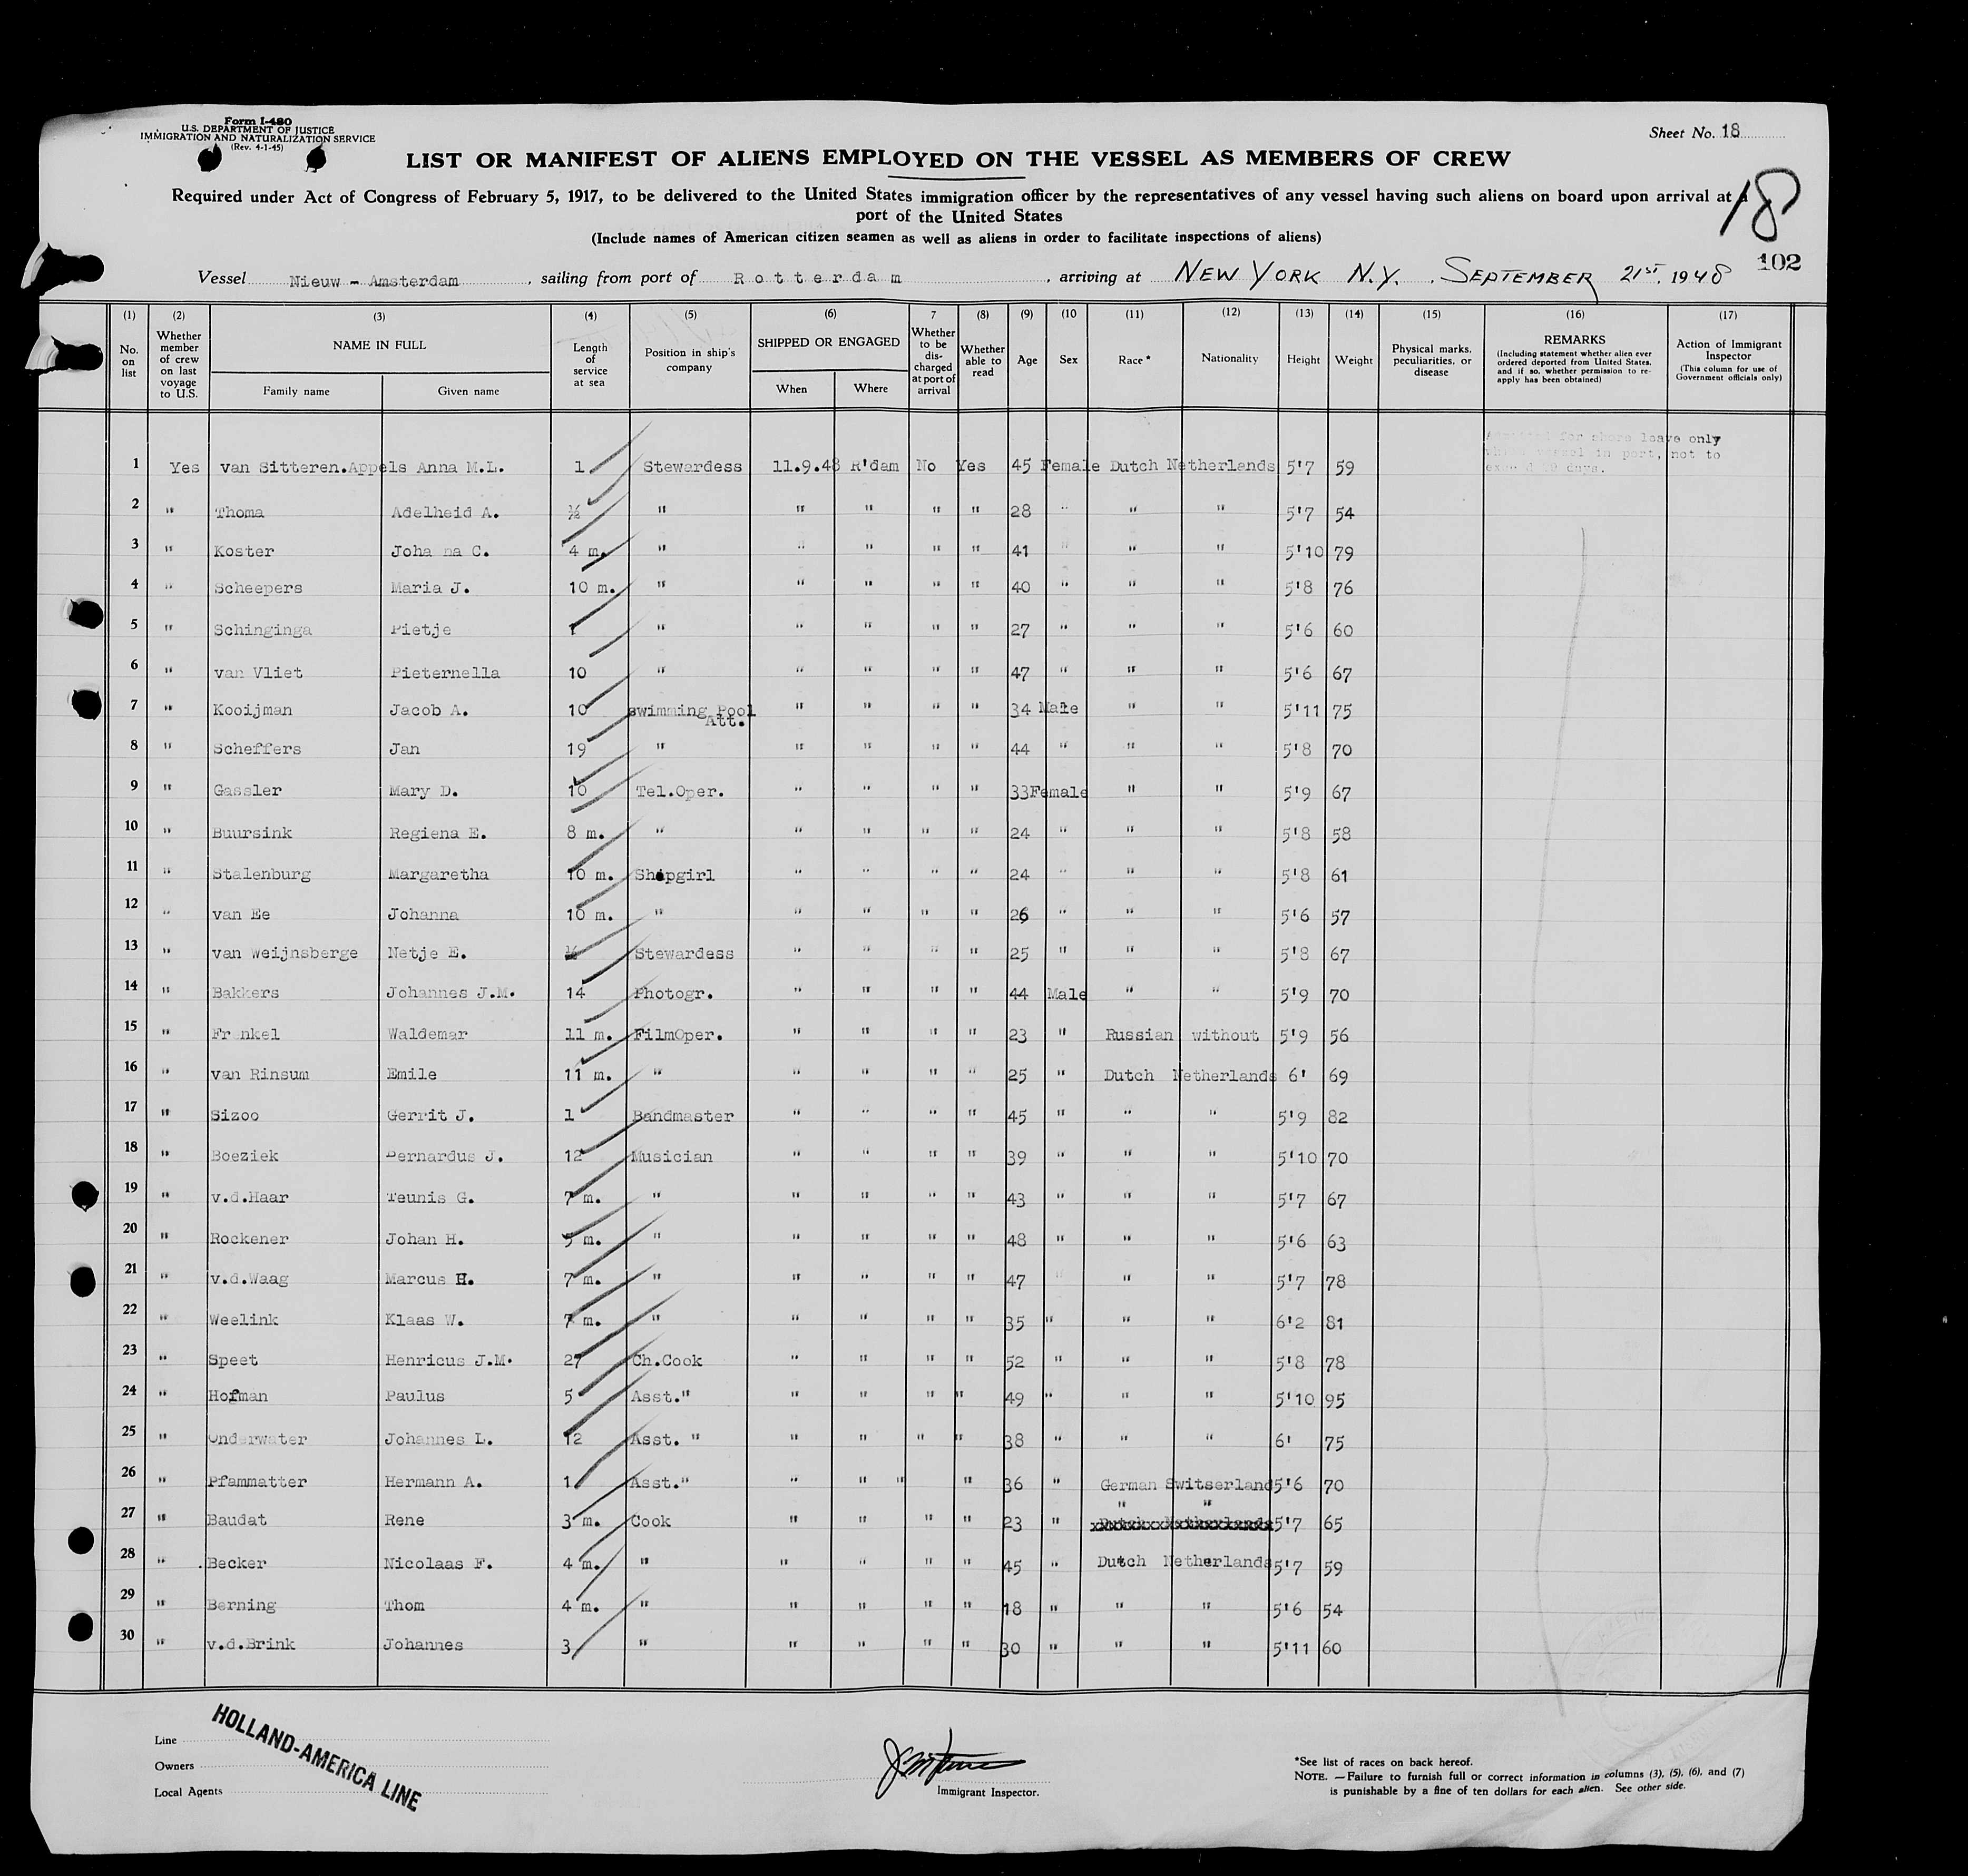 Form I-480
U.S. DEPARTMENT OF JUSTICE
IMMIGRATION AND NATURALIZATION SERVICE
(Rev. 4-1-45)
Sheet No. 18
LIST OR MANIFEST OF ALIENS EMPLOYED ON THE VESSEL AS MEMBERS OF CREW
Required under Act of Congress of February 5, 1917, to be delivered to the United States immigration officer by the representatives of any vessel having such aliens on board upon arrival at a
port of the United States
18
(Include names of American citizen seamen as well as aliens in order to facilitate inspections of aliens)
102
Vessel Nieuw - Amsterdam, sailing from port of Rotterdam, arriving at NEW YORK N.Y. SEPTEMBER 21ST, 1948
(1) No. on list
(2) Whether member of crew on last voyage to U.S.
(3) NAME IN FULL Family name Given name
(4) Length of service at sea
(5) Position in ship's company
(6) SHIPPED OR ENGAGED When Where
7 Whether to be discharged at port of arrival
(8) Whether able to read
(9) Age
(10 Sex
(11) Race*
(12) Nationality
(13) Height
(14) Weight
(15) Physical marks, peculiarities, or disease
(16) REMARKS (Including statement whether alien ever ordered deported from United States, and if so, whether permission to re-apply has been obtained)
(17) Action of Immigrant Inspector (This column for use of Government officials only)
1 Yes van Sitteren.Appels Anna M.L. 1 Stewardess 11.9.48 R'dam No Yes 45 Female Dutch Netherlands 5'7 59 for shore leave only in port, not to days.
2 " Thoma Adelheid A. ½ " " " " " 28 " " " 5'7 54
3 " Koster Joha na C. 4 m. " " " " " 41 " " " 5'10 79
4 " Scheepers Maria J. 10 m. " " " " " 40 " " " 5'8 76
5 " Schinginga Pietje 1 " " " " " 27 " " " 5'6 60
6 " van Vliet Pieternella 10 " " " " " 47 " " " 5'6 67
7 " Kooijman Jacob A. 10 swimming Pool Att. " " " " 34 Male " " 5'11 75
8 " Scheffers Jan 19 " " " " " 44 " " " 5'8 70
9 " Gassler Mary D. 10 Tel.Oper. " " " " 33 Female " " 5'9 67
10 " Buursink Regiena E. 8 m. " " " " " 24 " " " 5'8 58
11 " Stalenburg Margaretha 10 m. Shopgirl " " " " 24 " " " 5'8 61
12 " van Ee Johanna 10 m. " " " " " 26 " " " 5'6 57
13 " van Weijnsberge Netje E. ½ Stewardess " " " " 25 " " " 5'8 67
14 " Bakkers Johannes J.M. 14 Photogr. " " " " 44 Male " " 5'9 70
15 " Fr nkel Waldemar 11 m. FilmOper. " " " " 23 " Russian without 5'9 56
16 " van Rinsum Emile 11 m. " " " " " 25 " Dutch Netherlands 6' 69
17 " Sizoo Gerrit J. 1 Bandmaster " " " " 45 " " " 5'9 82
18 " Boeziek Bernardus J. 12 Musician " " " " 39 " " " 5'10 70
19 " v.d.Haar Teunis G. 7 m. " " " " " 43 " " " 5'7 67
20 " Rockener Johan H. 5 m. " " " " " 48 " " " 5'6 63
21 " v.d.Waag Marcus H. 7 m. " " " " " 47 " " " 5'7 78
22 " Weelink Klaas W. 7 m. " " " " " 35 " " " 6'2 81
23 " Speet Henricus J.M. 27 Ch.Cook " " " " 52 " " " 5'8 78
24 " Hofman Paulus 5 Asst." " " " " 49 " " " 5'10 95
25 " Onderwater Johannes L. 12 Asst. " " " " " 38 " " " 6' 75
26 " Pfammatter Hermann A. 1 Asst." " " " " 36 " German Switserland 5'6 70
27 " Baudat Rene 3 m. Cook " " " " 23 " " " 5'7 65
28 " Becker Nicolaas F. 4 m. " " " " " 45 " Dutch Netherlands 5'7 59
29 " Berning Thom 4 m. " " " " " 18 " " " 5'6 54
30 " v.d.Brink Johannes 3 " " " " " 30 " " " 5'11 60
Line
Owners
Local Agents
HOLLAND-AMERICA LINE
Immigrant Inspector.
*See list of races on back hereof.
NOTE. — Failure to furnish full or correct information in columns (3), (5), (6), and (7)
is punishable by a fine of ten dollars for each alien. See other side.